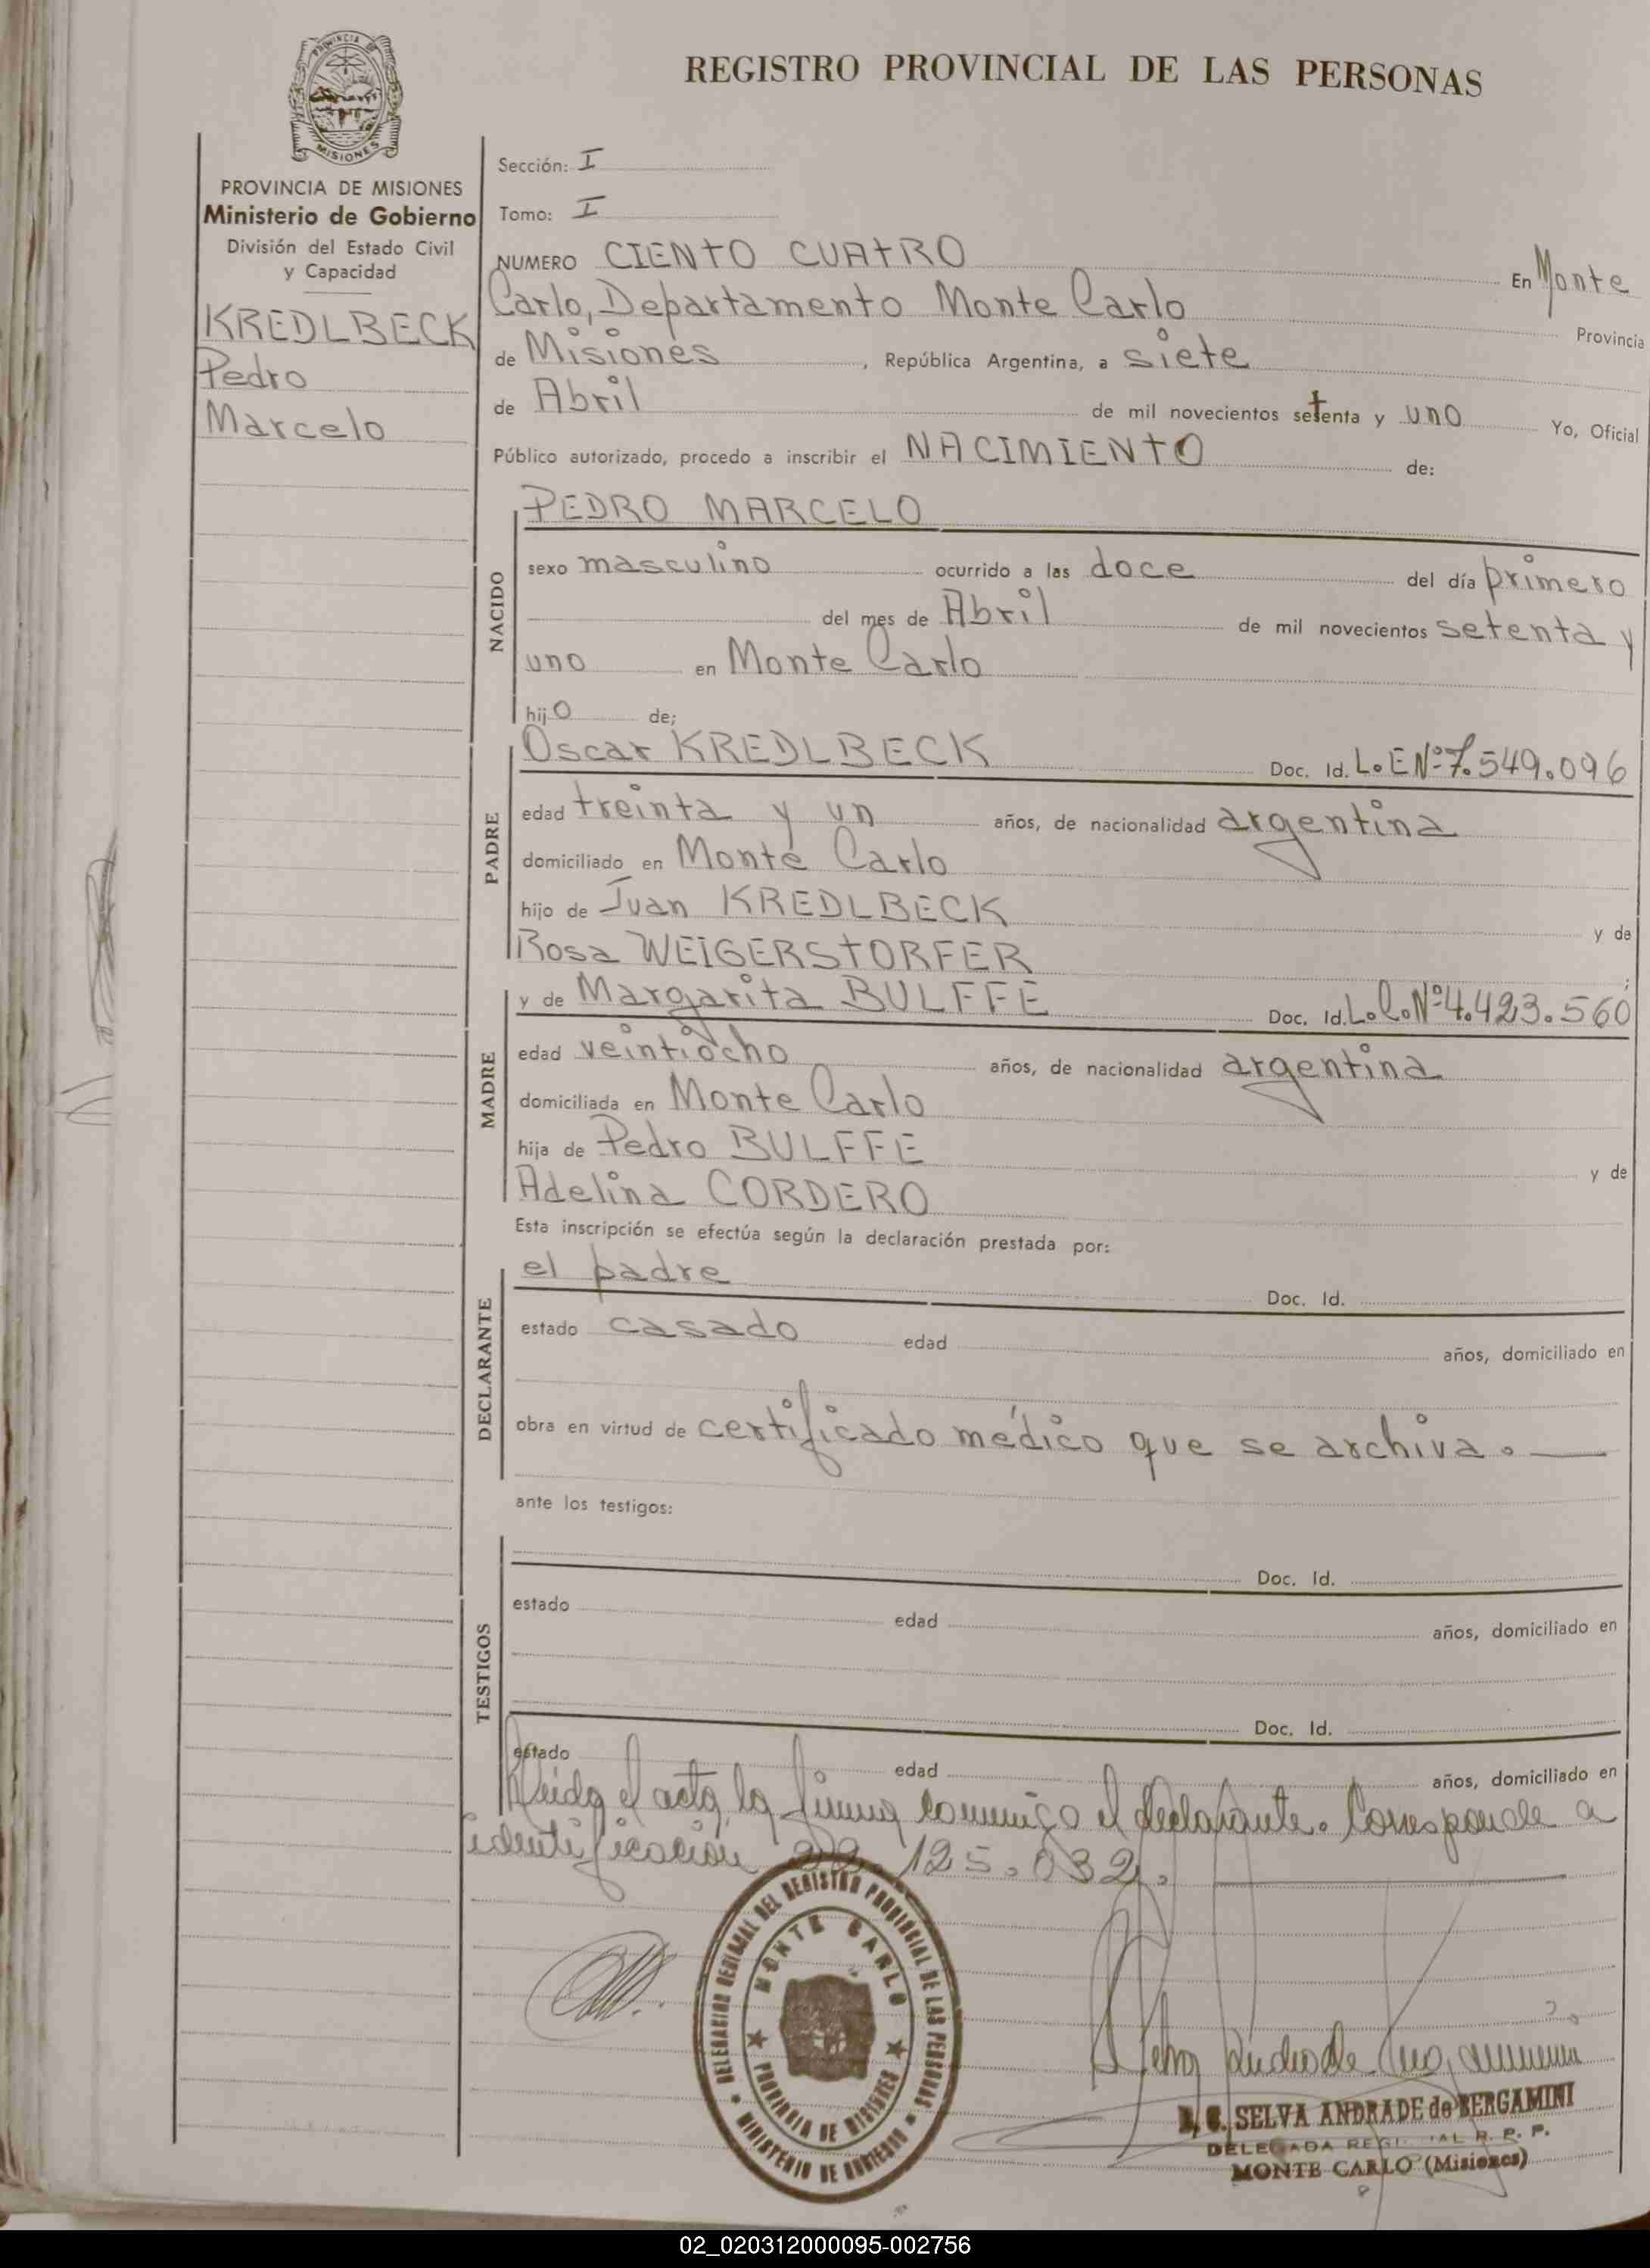 PROVINCIA DE
MISIONES
REGISTRO PROVINCIAL DE LAS PERSONAS
PROVINCIA DE MISIONES
Ministerio de Gobierno
División del Estado Civil
y Capacidad
KREDLBECK
Pedro
Marcelo
Sección: I
Tomo: I
NUMERO CIENTO CUATRO En Monte
Carlo, Departamento Monte Carlo Provincia
de Misiones, República Argentina, a siete
de Abril de mil novecientos setenta y uno Yo, Oficial
Público autorizado, procedo a inscribir el NACIMIENTO de:
NACIDO
PEDRO MARCELO
sexo masculino ocurrido a las doce del día primero
del mes de Abril de mil novecientos setenta y
uno en Monte Carlo
hijo de;
PADRE
Oscar KREDLBECK Doc. Id. L.E Nº 7.549.096
edad treinta y un años, de nacionalidad argentina
domiciliado en Monte Carlo
hijo de Juan KREDLBECK y de
Rosa WEIGERSTORFER ;
MADRE
y de Margarita BULFFE Doc. Id. L.C. Nº 4.423.560
edad veintiocho años, de nacionalidad argentina
domiciliada en Monte Carlo
hija de Pedro BULFFE y de
Adelina CORDERO
Esta inscripción se efectúa según la declaración prestada por:
DECLARANTE
el padre Doc. Id.
estado casado edad años, domiciliado en
obra en virtud de certificado médico que se archiva.
ante los testigos:
TESTIGOS
Doc. Id.
estado edad años, domiciliado en
Doc. Id.
estado edad años, domiciliado en
Leída el acta, la firma conmigo el declarante. Corresponde a
identificación 22.125.032.
DELEGACION REGIONAL DEL REGISTRO PROVINCIAL DE LAS PERSONAS
MONTE CARLO
PROVINCIA DE MISIONES
MINISTERIO DE GOBIERNO
SELVA ANDRADE de BERGAMINI
DELEGADA REGIONAL R. P. P.
MONTE CARLO (Misiones)
02_020312000095-002756